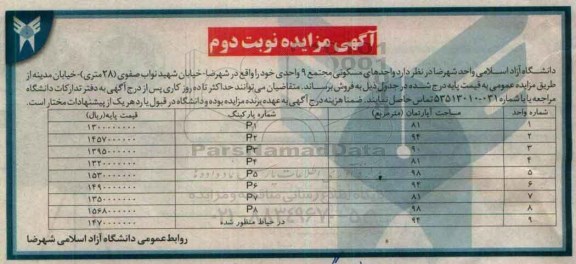 آگهی مزایده نوبت دوم
دانشگاه آزاد اسلامی واحد شهرضا در نظر دارد واحدهای مسکونی مجتمع ۹ واحدی خود را واقع در شهرضا- خیابان شهید نواب صفوی (۲۸متری)- خیابان مدینه از
طریق مزایده عمومی به قیمت پایه درج شده در جدول ذیل به فروش برساند. متقاضیان می‌توانند حداکثر تا ده روز کاری پس از درج آگهی به دفتر تدارکات دانشگاه
مراجعه یا با شماره ۵۳۵۱۳۰۱۰۰۰۳۱ تماس حاصل نمایند. ضمنا هزینه درج آگهی به عهده برنده مزایده بوده و دانشگاه در قبول یا رد هر یک از پیشنهادات مختار است.
شماره واحد مساحت آپارتمان (مترمربع) شماره پارکینگ قیمت پایه(ریال)
۱ ۸۱ P۱ ۱۳۰۰۰۰۰۰۰۰۰
۲ ۹۴ P۲ ۱۴۵۷۰۰۰۰۰۰۰
۳ ۹۰ P۳ ۱۳۹۵۰۰۰۰۰۰۰
۴ ۸۱ P۴ ۱۳۲۰۰۰۰۰۰۰۰
۵ ۹۸ P۵ ۱۵۳۰۰۰۰۰۰۰۰
۶ ۹۴ P۶ ۱۴۹۰۰۰۰۰۰۰۰
۷ ۸۱ P۷ ۱۳۵۰۰۰۰۰۰۰۰
۸ ۹۸ P۸ ۱۵۶۸۰۰۰۰۰۰۰
۹ ۹۴ در حیاط منظور شده ۱۴۷۰۰۰۰۰۰۰۰
روابط عمومی دانشگاه آزاد اسلامی شهرضا
ParsNamadData